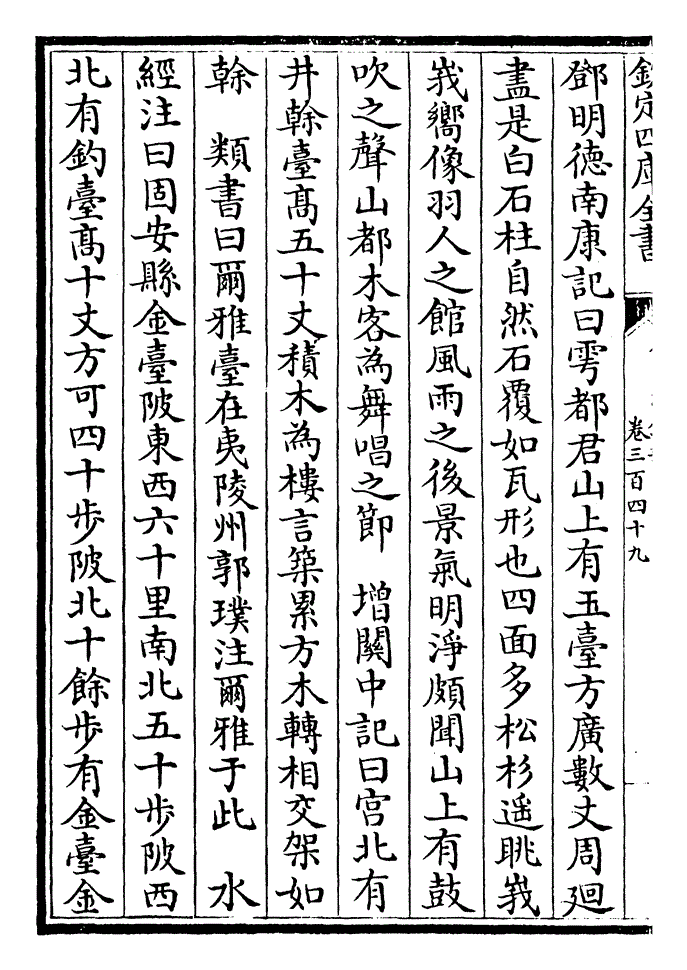 欽定四庫全書
卷三百四十九
鄧明德南康記曰雩都君山上有玉臺方廣數丈周迴
盡是白石柱自然石覆如瓦形也四面多松杉遥眺峩
峩嚮像羽人之館風雨之後景氣明淨頗聞山上有鼓
吹之聲山都木客為舞唱之節　增闗中記曰宫北有
井幹臺髙五十丈積木為樓言築累方木轉相交架如
幹　類書曰爾雅臺在夷陵州郭璞注爾雅于此　水
經注曰固安縣金臺陂東西六十里南北五十歩陂西
北有釣臺髙十丈方可四十歩陂北十餘歩有金臺金